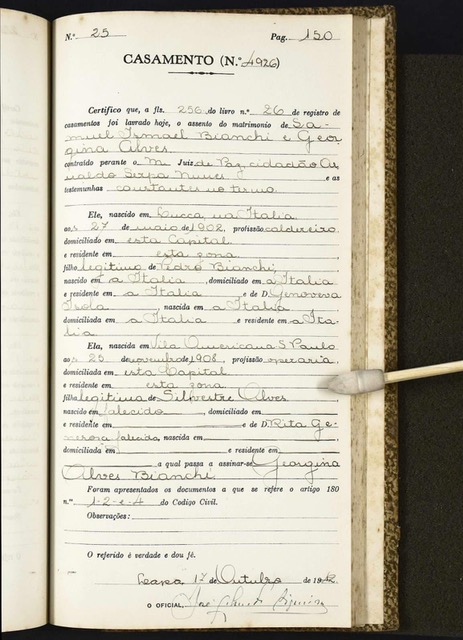 N.º 25 Pag. 150
CASAMENTO (N.º 4926)
Certifico que, a fls. 256 do livro n.º 26 de registro de
casamentos foi lavrado hoje, o assento do matrimonio de Sa-
muel Ismael Bianchi e Geor-
gina Alves
contraído perante o M. Juiz de Paz, cidadão Ar-
naldo Serpa Nunes e as
testemunhas constantes no termo.
Ele, nascido em Lucca, na Italia
aos 27 de maio de 1902, profissão caldereiro
domiciliado em esta Capital
e residente em esta zona
filho legitimo de Pedro Bianchi,
nascido em a Italia, domiciliado em a Italia
e residente em a Italia e de D. Genoveva
nascida em a Italia,
domiciliada em a Italia e residente em a Ita-
lia
Ela, nascida em Vila Americana S Paulo
aos 25 de novembro de 1908, profissão operaria
domiciliada em esta Capital
e residente em esta zona
filha legitima de Silvestre Alves
nascido em falecido, domiciliado em
e residente em e de D. Rita Ge-
nerosa falecida, nascida em
domiciliada em e residente em
a qual passa a assinar-se Georgina
Alves Bianchi
Foram apresentados os documentos a que se refere o artigo 180
n.º 1-2-e-4 do Codigo Civil.
Observações:
O referido é verdade e dou fé.
Lapa 17 de Outubro de 1942
O OFICIAL,